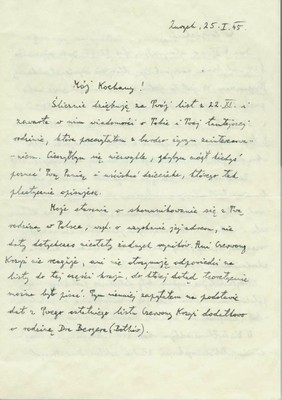 Zurych, 25.I.45
Mój Kochany!
Ślicznie dziękuję za Twój list z 22.XI. i
zawarte w nim wiadomości o Tobie i Twej tamtejszej
rodzinie, które przeczytałem z bardzo żywym zainteresowa-
niem. Cieszyłbym się niezwykle, gdybym mógł kiedyś
poznać Twą Panią i
plastycznie opisujesz.
Moje starania o skomunikowanie się z Twą
rodziną w Polsce, wzgl. o uzyskanie jej adresu, nie
dały dotychczas niestety żadnych wyników. Ani Czerwony
Krzyż nie reaguje, ani nie otrzymuję odpowiedzi na
listy do tej części kraju, do której dotąd teoretycznie
można było pisać. Tym niemniej zapytałem na podstawie
dat z Twego ostatniego listu Czerwony Krzyż dodatkowo
o rodzinę Dra Bergera